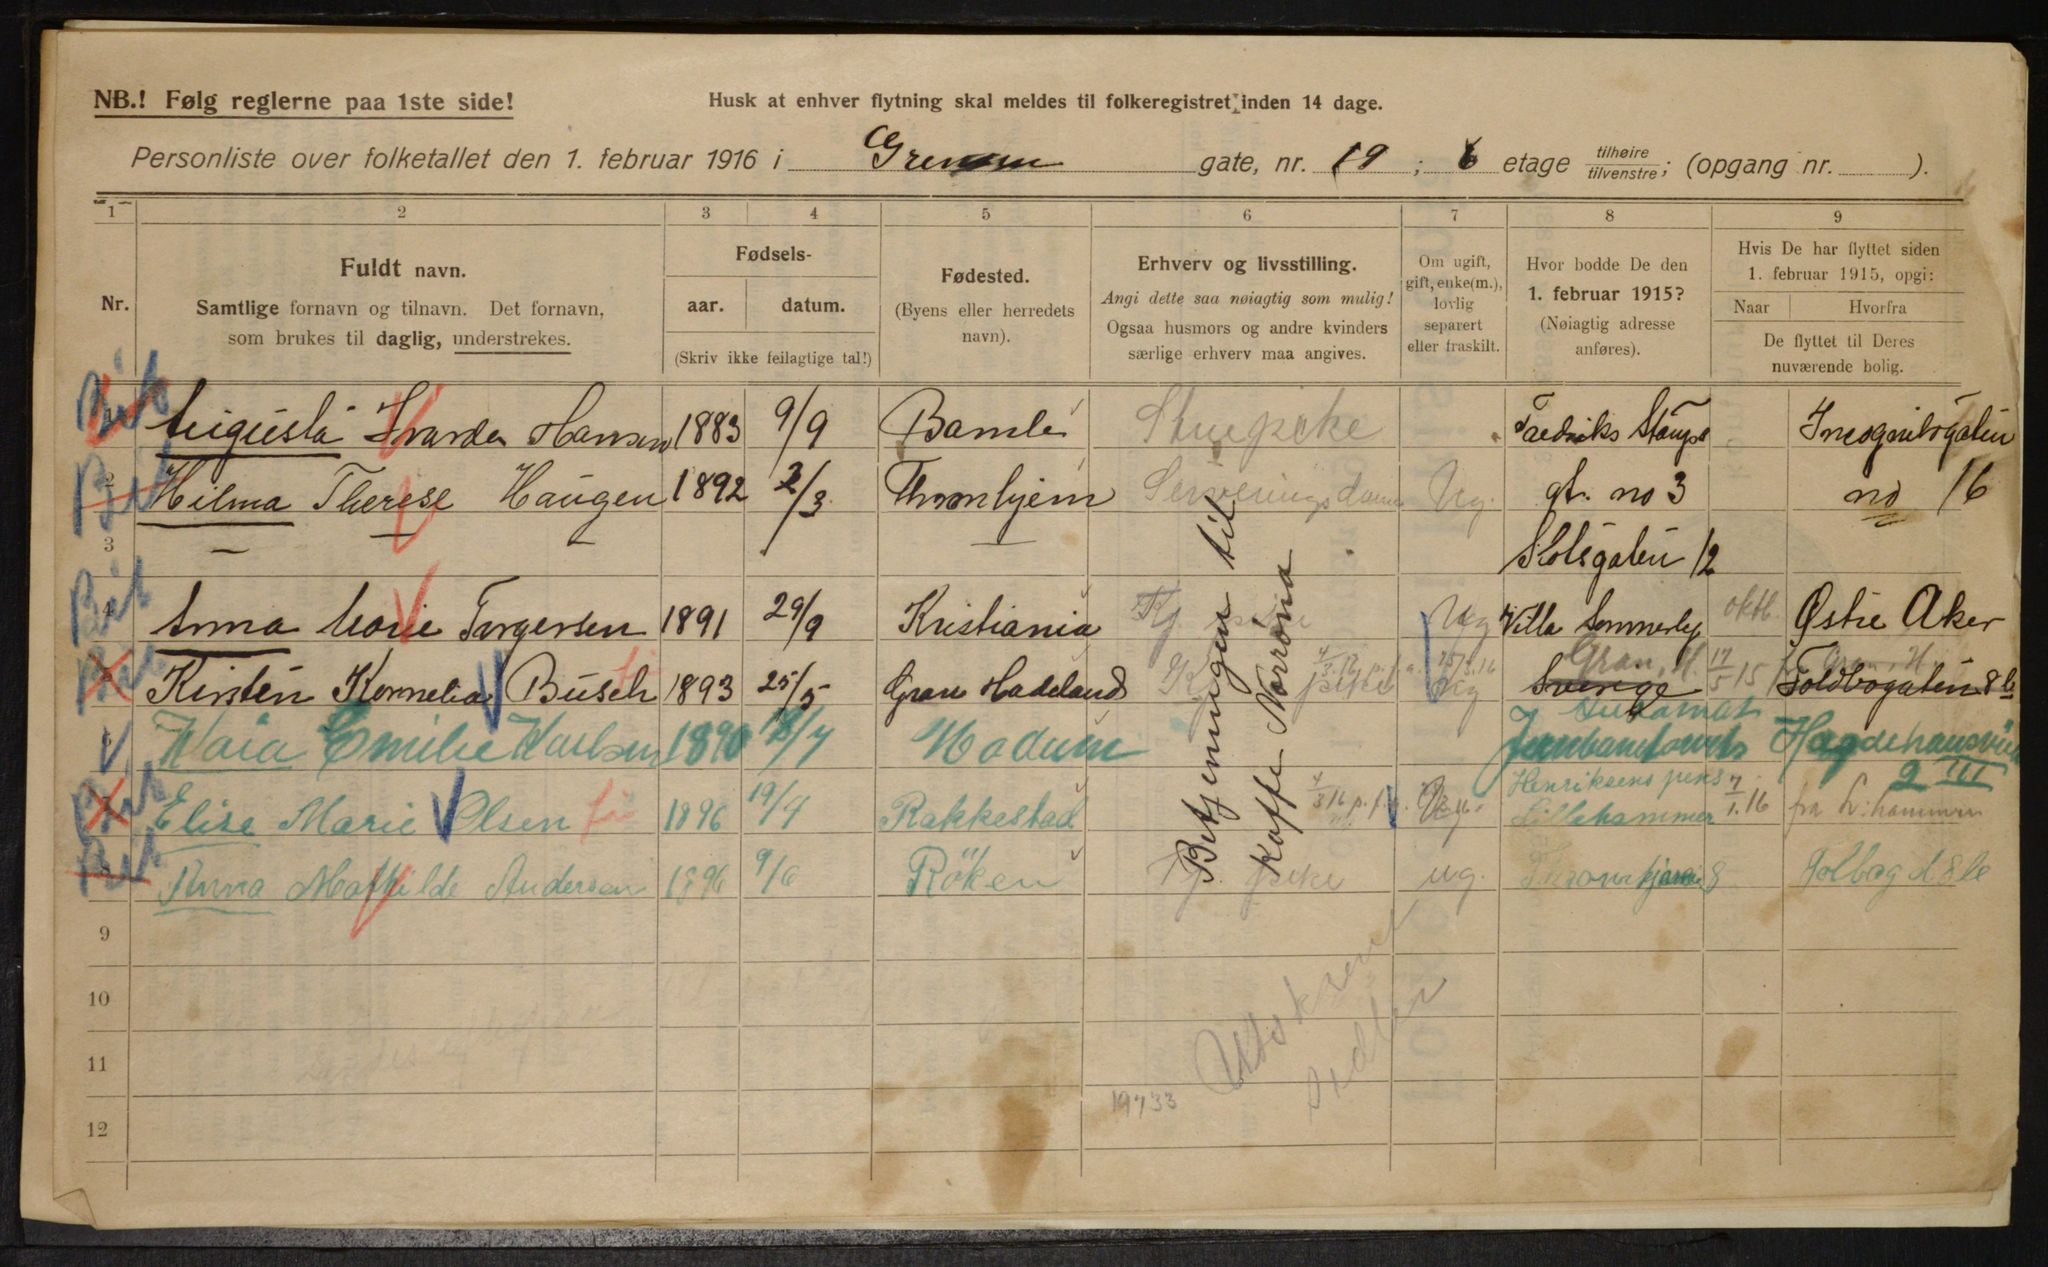 NB.! Følg reglerne paa 1ste side!
Husk at enhver flytning skal meldes til folkeregistret inden 14 dage.
Personliste over folketallet den 1. februar 1916 i Grensen gate, nr. 19; 6 etage tilhøire/tilvenstre; (opgang nr. ).
1 2 3 4 5 6 7 8 9
Nr.
Fuldt navn.
Samtlige fornavn og tilnavn. Det fornavn,
som brukes til daglig, understrekes.
Fødsels-
aar. datum.
(Skriv ikke feilagtige tal!)
Fødested.
(Byens eller herredets
navn).
Erhverv og livsstilling.
Angi dette saa nøiagtig som mulig!
Ogsaa husmors og andre kvinders
særlige erhverv maa angives.
Om ugift,
gift, enke(m.),
lovlig
separert
eller fraskilt.
Hvor bodde De den
1. februar 1915?
(Nøiagtig adresse
anføres).
Hvis De har flyttet siden
1. februar 1915, opgi:
Naar Hvorfra
De flyttet til Deres
nuværende bolig.
Augusta Hansen 1883 9/9 Bamle Stuepike Fredriks Stangs Incognitogaten
2 Hilma Therese Haugen 1892 2/3 Thronhjem Serveringsdame Ug. gt. no 3 no 16
3 Slotsgaten 12
4 Anna Marie Torgersen 1891 29/9 Kristiania Ug Villa Sommerly oktb. Østre Aker
Kirsten Kornelia Busch 1893 25/5 Gran Hadeland pike Ug Gran, H. 17/5 15 fra Gran, H.
Sverige Toldbogaten 8 b
Kaia Emilie Karlsen 1890 Modum Jernbanetorvets Hægdehaugsveien
2 III
Elise Marie Olsen 1896 19/9 Rakkestad 4/3 16 p. f. a. Ug. Henriksens pens 7/1.16
Lillehammer fra L:hammer
Anna Mathilde Andersen 1896 9/6 Röken Kj. pike ug. Tolbog d 8 b
Betjeningen til
Kaffe Norrøna
9
10
11
12
19733